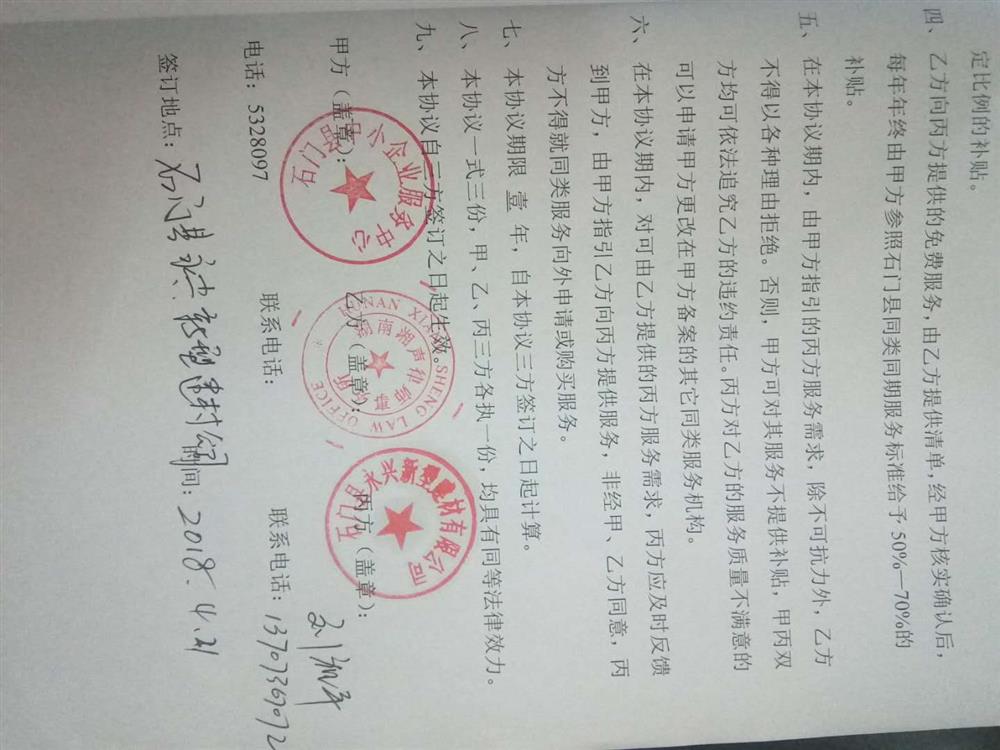 定比例的补贴。
四、乙方向丙方提供的免费服务,由乙方提供清单,经甲方核实确认后,
每年年终由甲方参照石门县同类同期服务标准给予50%—70%的
补贴。
五、在本协议期内,由甲方指引的丙方服务需求,除不可抗力外,乙方
不得以各种理由拒绝。否则,甲方可对其服务不提供补贴,甲丙双
方均可依法追究乙方的违约责任。丙方对乙方的服务质量不满意的
可以申请甲方更改在甲方备案的其它同类服务机构。
六、在本协议期内,对可由乙方提供的丙方服务需求,丙方应及时反馈
到甲方,由甲方指引乙方向丙方提供服务,非经甲、乙方同意,丙
方不得就同类服务向外申请或购买服务。
七、本协议期限 壹 年,自本协议三方签订之日起计算。
八、本协议一式三份,甲、乙、丙三方各执一份,均具有同等法律效力。
九、本协议自三方签订之日起生效。
甲方(盖章): 乙方(盖章): 丙方(盖章):
石门县中小企业服务中心
XIANGSHENG LAW OFFICE
石门县永兴新型建材有限公司
电话:5328097 联系电话: 联系电话:13707369072
签订地点:石门县 新型建材 时间:2018.4.21